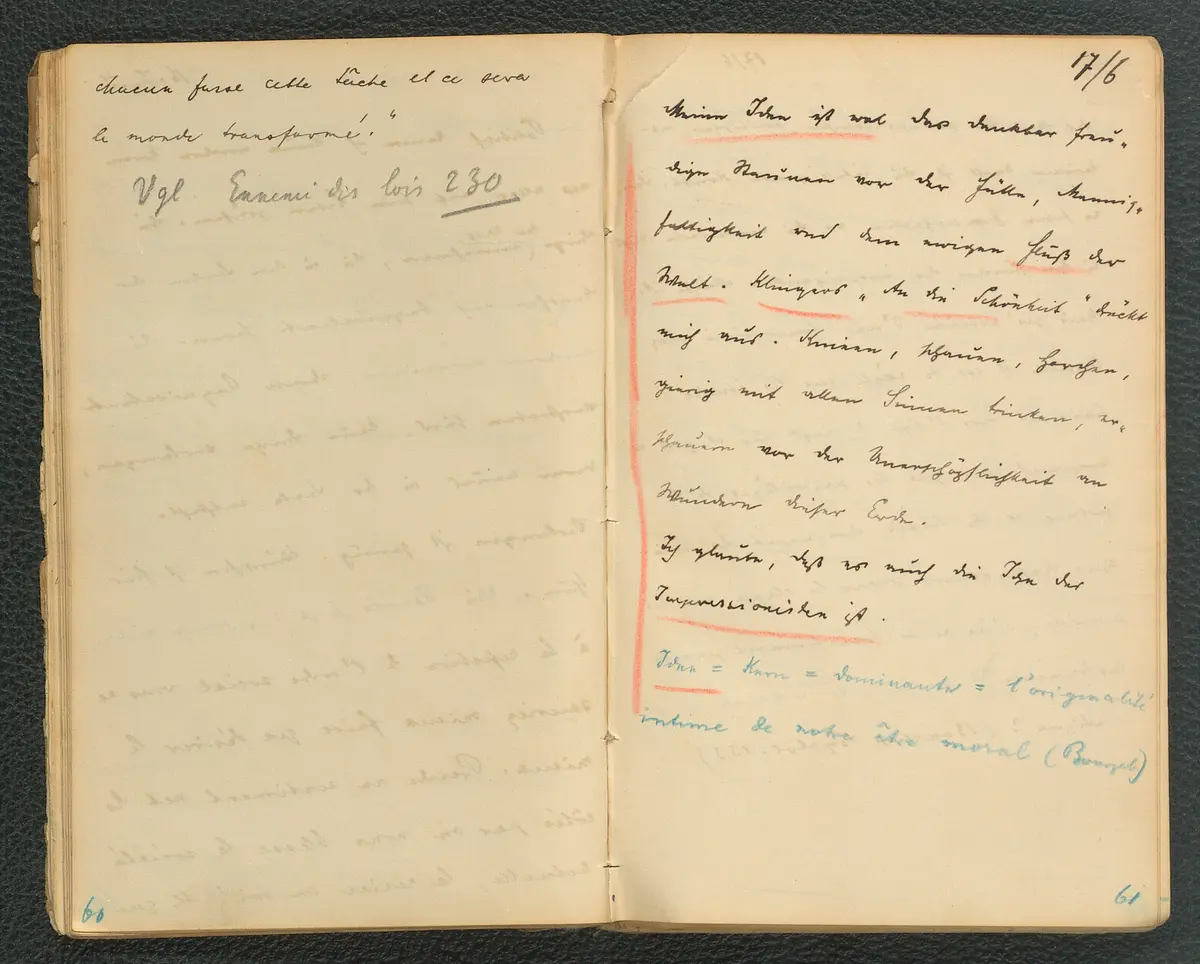 chacun fasse cette tâche et ce sera
le monde transformé."
Vgl Ennemi des lois 230
60
17/6
Meine Idee ist wol das dankbar freu-
dige Staunen vor der Fülle, Mannig-
faltigkeit und dem ewigen Fluß der
Welt. Klingers „An die Schönheit" drückt
mich aus. Knieen, schauen, horchen,
gierig mit allen Sinnen trinken, er-
schauern vor der Unerschöpflichkeit an
Wundern dieser Erde.
Ich glaube, daß es auch die Idee der
Impressionisten ist.
Idee = Kern = dominante = l'originalité
intime de notre être moral (Bourget)
61